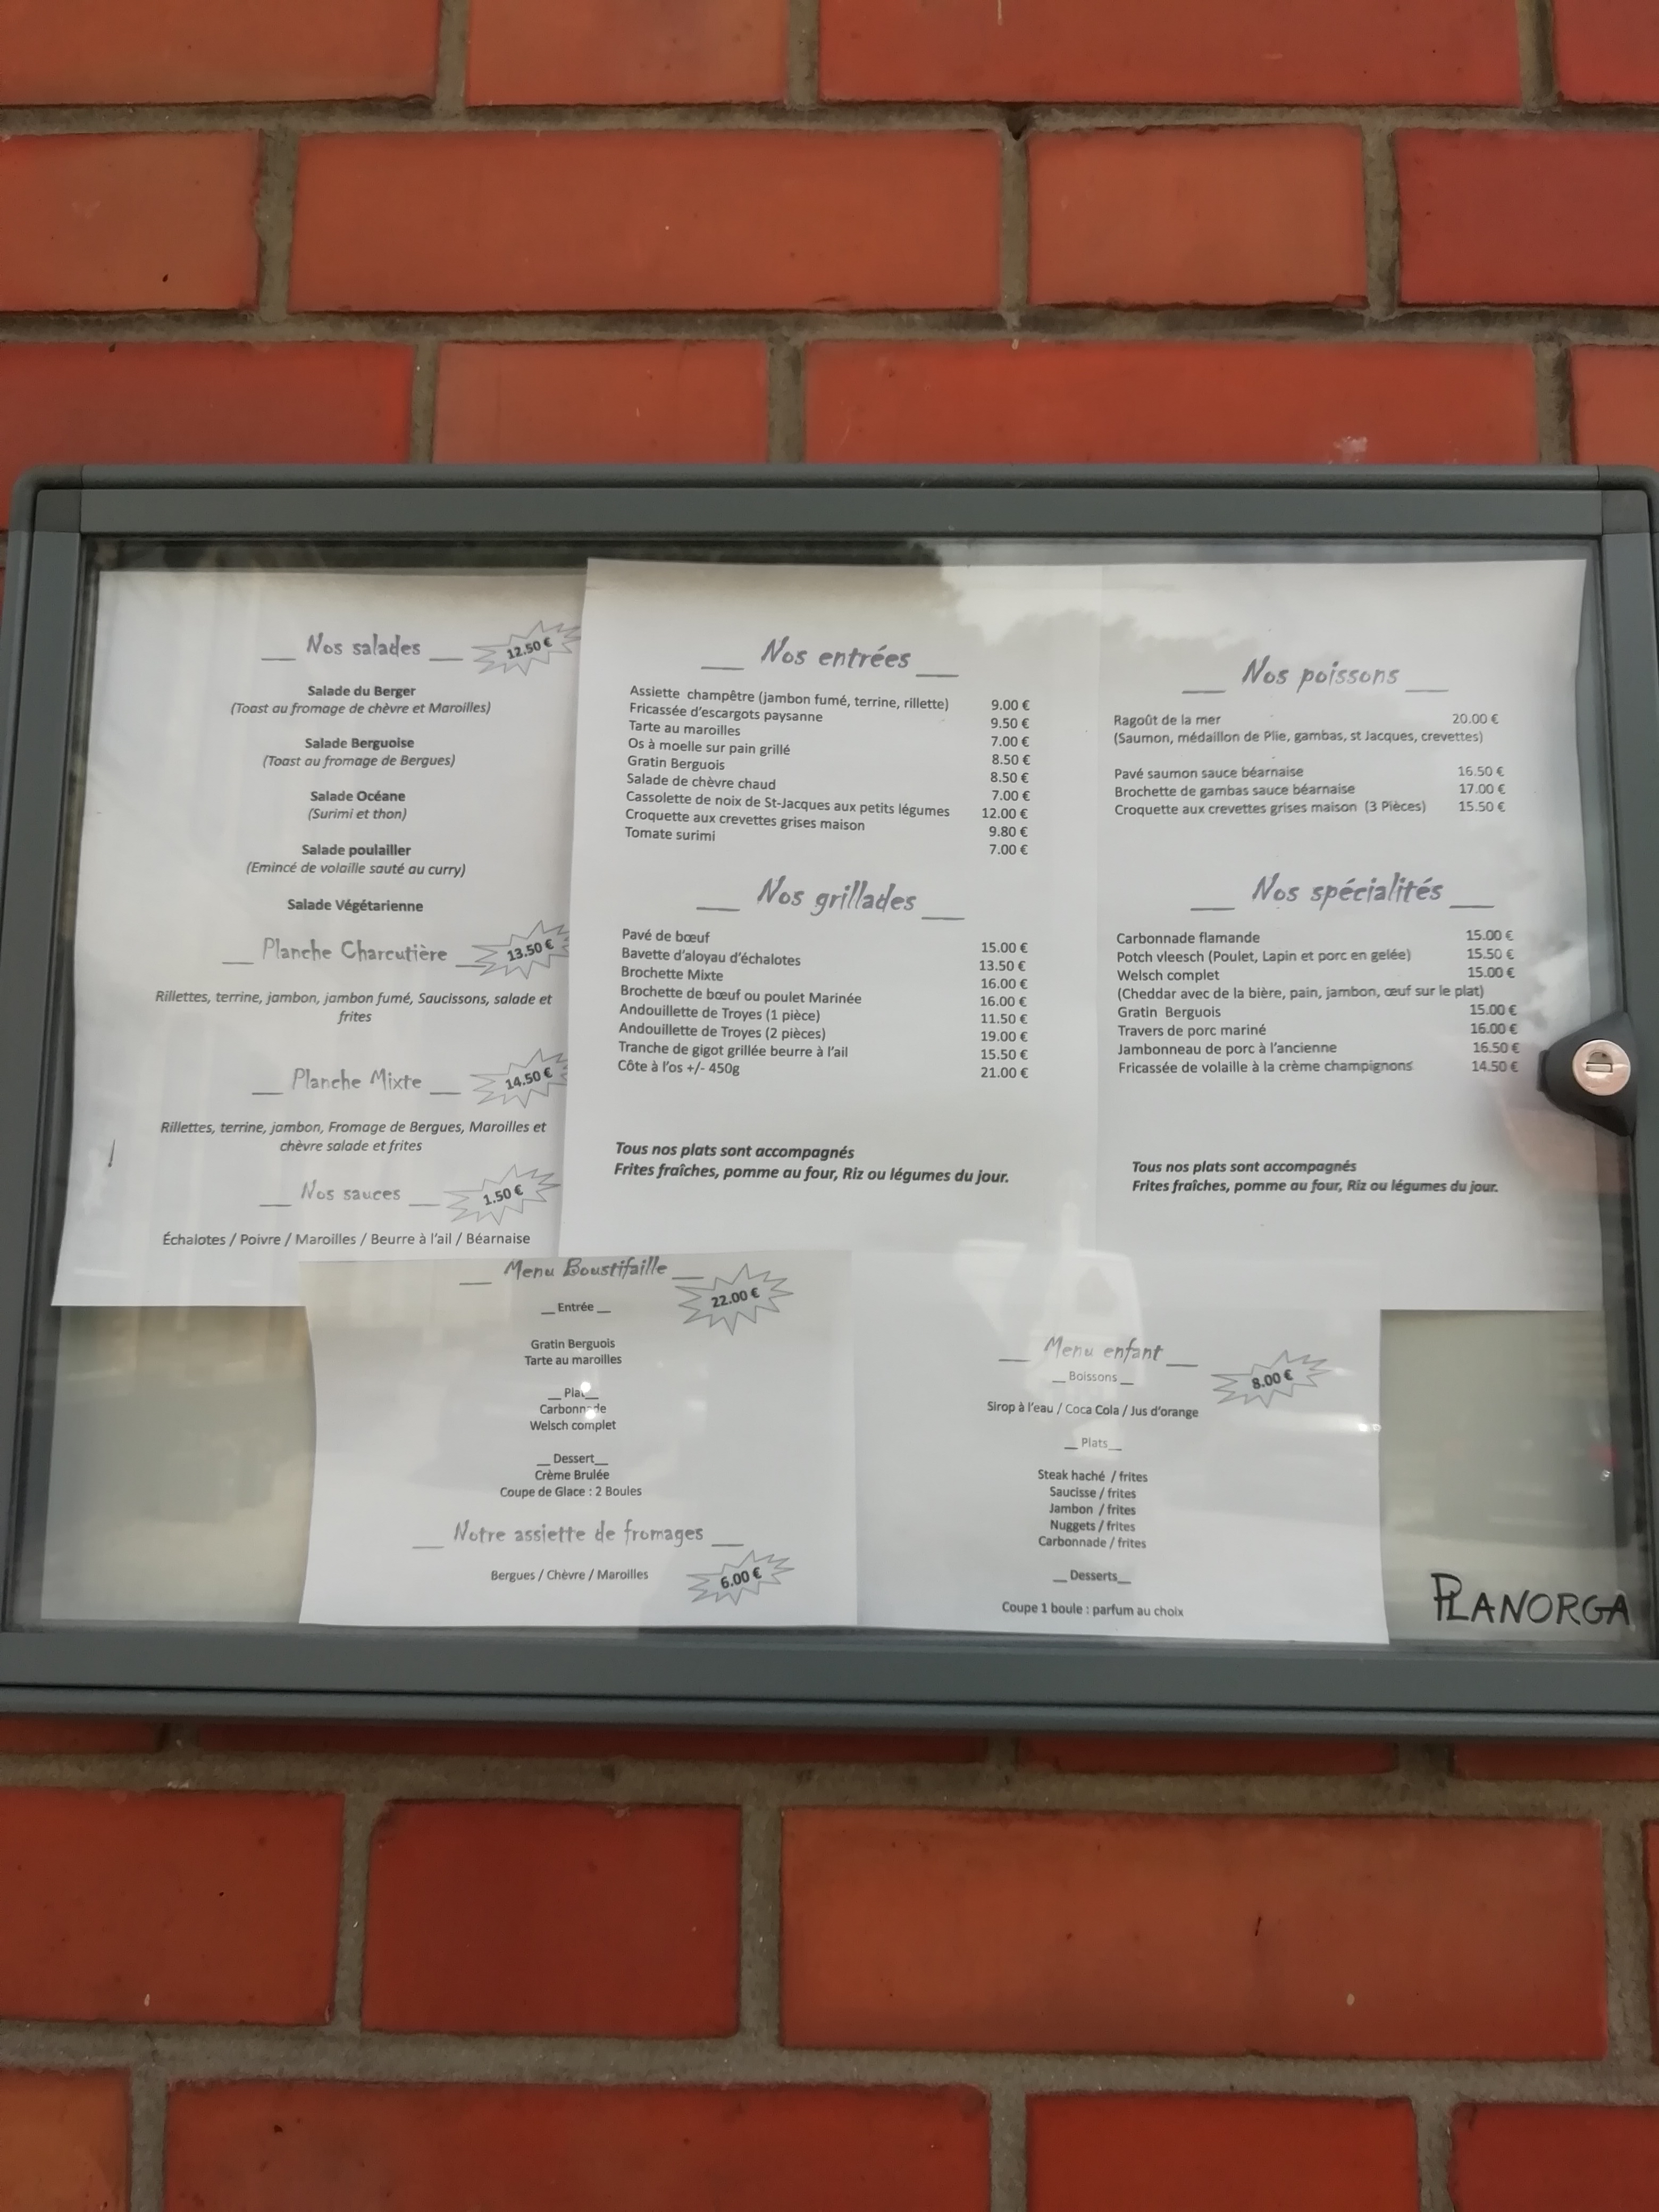 Nos salades
12.50 €
Salade du Berger
(Toast au fromage de chèvre et Maroilles)
Salade Berguoise
(Toast au fromage de Bergues)
Salade Océane
(Surimi et thon)
Salade poulailler
(Emincé de volaille sauté au curry)
Salade Végétarienne
Planche Charcutière
13.50 €
Rillettes, terrine, jambon, jambon fumé, Saucissons, salade et
frites
Planche Mixte
14.50 €
Rillettes, terrine, jambon, Fromage de Bergues, Maroilles et
chèvre salade et frites
Nos sauces
1.50 €
Échalotes / Poivre / Maroilles / Beurre à l'ail / Béarnaise
Nos entrées
Assiette champêtre (jambon fumé, terrine, rillette) 9.00 €
Fricassée d'escargots paysanne 9.50 €
Tarte au maroilles 7.00 €
Os à moelle sur pain grillé 8.50 €
Gratin Berguois 8.50 €
Salade de chèvre chaud 7.00 €
Cassolette de noix de St-Jacques aux petits légumes 12.00 €
Croquette aux crevettes grises maison 9.80 €
Tomate surimi 7.00 €
Nos grillades
Pavé de bœuf 15.00 €
Bavette d'aloyau d'échalotes 13.50 €
Brochette Mixte 16.00 €
Brochette de bœuf ou poulet Marinée 16.00 €
Andouillette de Troyes (1 pièce) 11.50 €
Andouillette de Troyes (2 pièces) 19.00 €
Tranche de gigot grillée beurre à l'ail 15.50 €
Côte à l'os +/- 450g 21.00 €
Tous nos plats sont accompagnés
Frites fraîches, pomme au four, Riz ou légumes du jour.
Nos poissons
Ragoût de la mer 20.00 €
(Saumon, médaillon de Plie, gambas, st Jacques, crevettes)
Pavé saumon sauce béarnaise 16.50 €
Brochette de gambas sauce béarnaise 17.00 €
Croquette aux crevettes grises maison (3 Pièces) 15.50 €
Nos spécialités
Carbonnade flamande 15.00 €
Potch vleesch (Poulet, Lapin et porc en gelée) 15.50 €
Welsch complet 15.00 €
(Cheddar avec de la bière, pain, jambon, œuf sur le plat)
Gratin Berguois 15.00 €
Travers de porc mariné 16.00 €
Jambonneau de porc à l'ancienne 16.50 €
Fricassée de volaille à la crème champignons 14.50 €
Tous nos plats sont accompagnés
Frites fraîches, pomme au four, Riz ou légumes du jour.
Menu Boustifaille
22.00 €
__ Entrée __
Gratin Berguois
Tarte au maroilles
__ Plat__
Carbonnade
Welsch complet
__ Dessert__
Crème Brulée
Coupe de Glace : 2 Boules
Notre assiette de fromages
Bergues / Chèvre / Maroilles
6.00 €
Menu enfant
8.00 €
__ Boissons __
Sirop à l'eau / Coca Cola / Jus d'orange
__ Plats__
Steak haché / frites
Saucisse / frites
Jambon / frites
Nuggets / frites
Carbonnade / frites
__ Desserts__
Coupe 1 boule : parfum au choix
PLANORGA